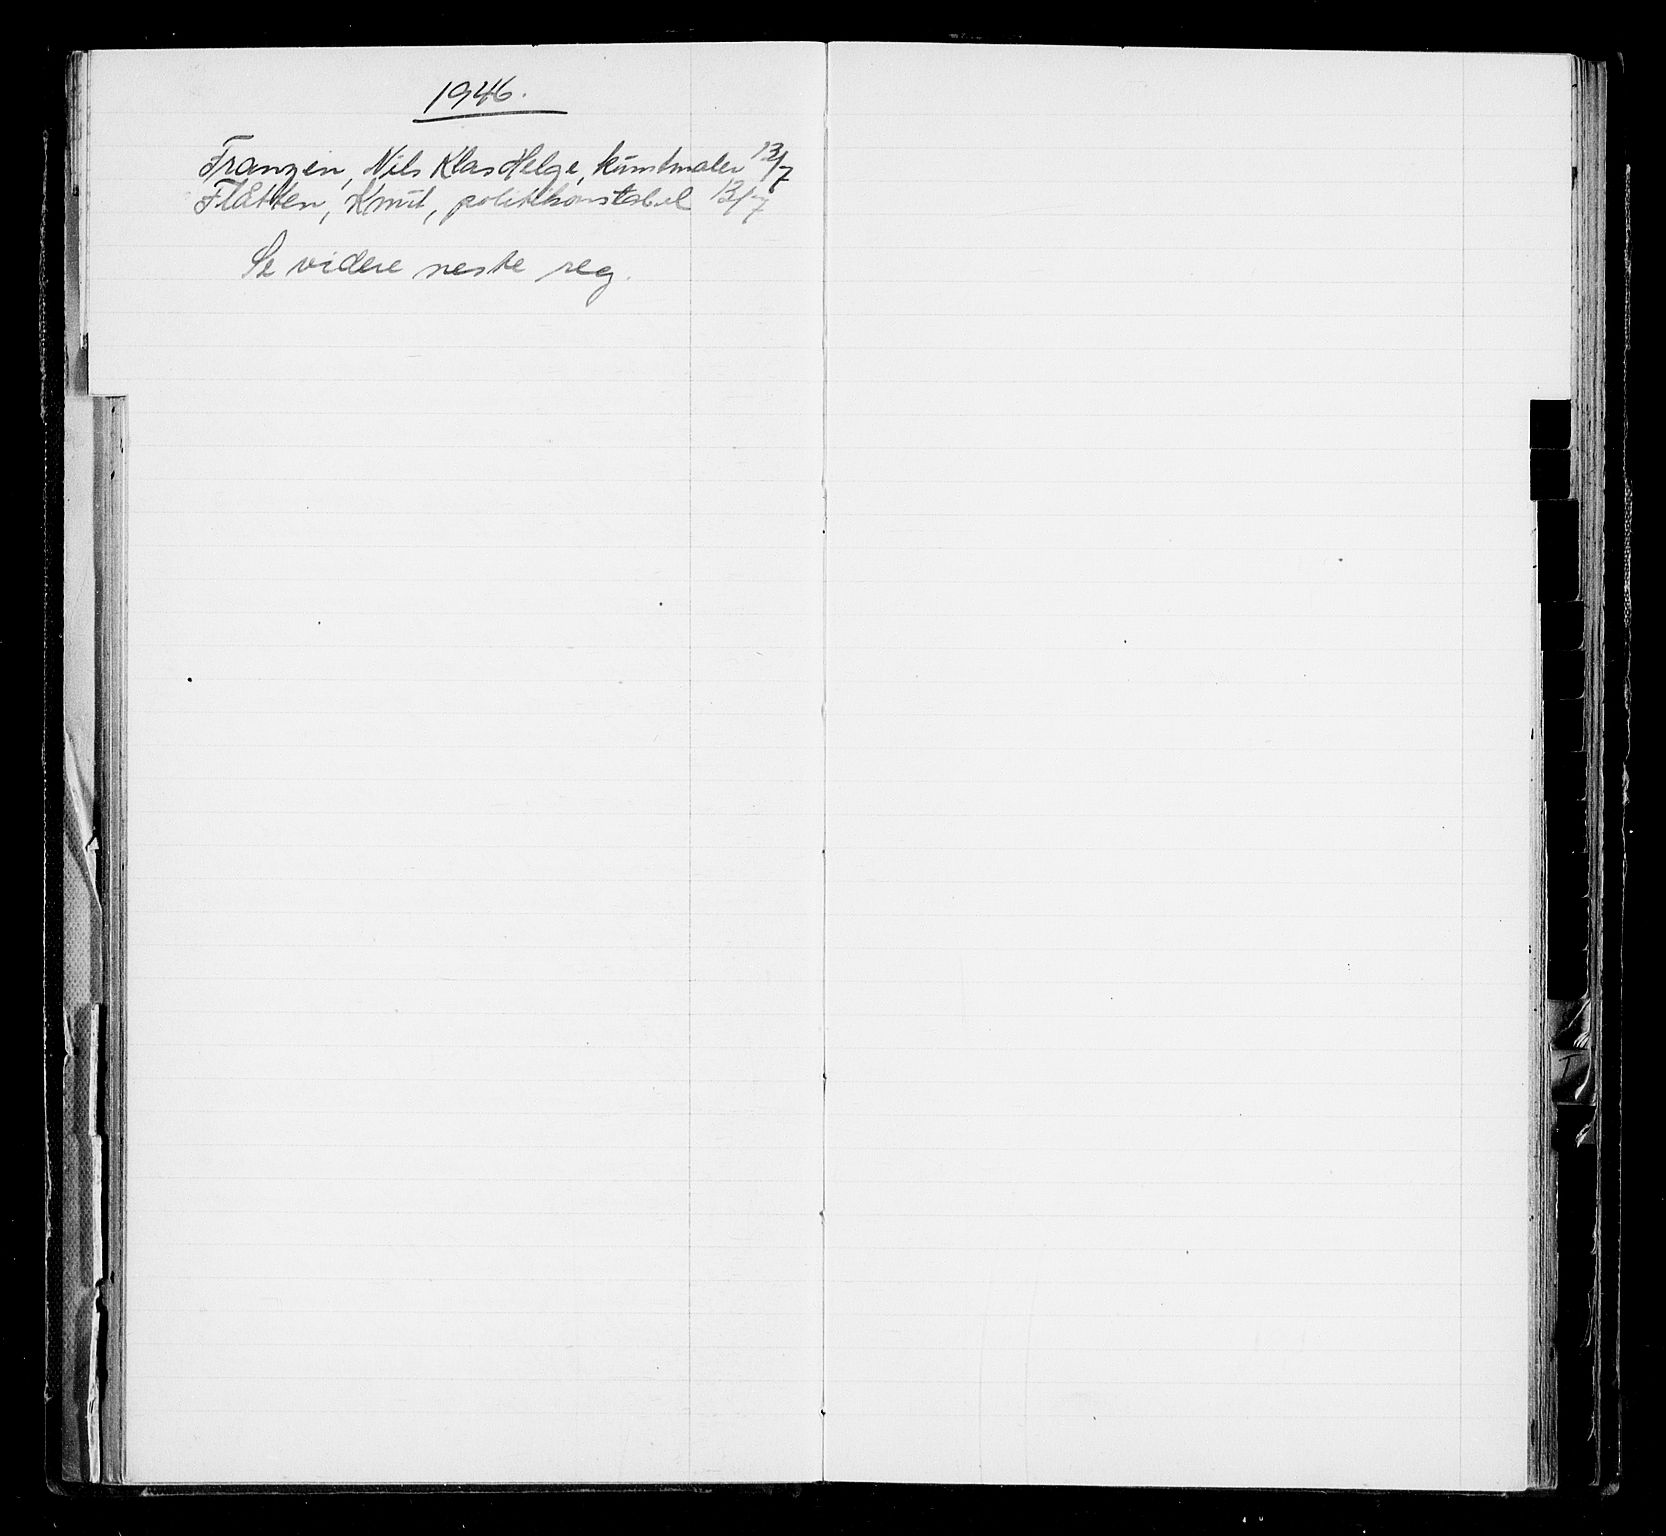 1946.
Franzen, Nils Klas Helge, kunstmaler 13/7
Flåtten, Knut, politikonstabel 13/7
Se videre neste reg.
T